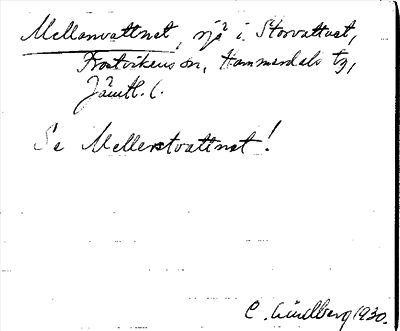 Mellanvattnet, sjö i Storvattnet,
Frostvikens sn, Hammerdals tg,
Jämtl. l.
Se Mellerstvattnet!
C. Lindberg 1930.